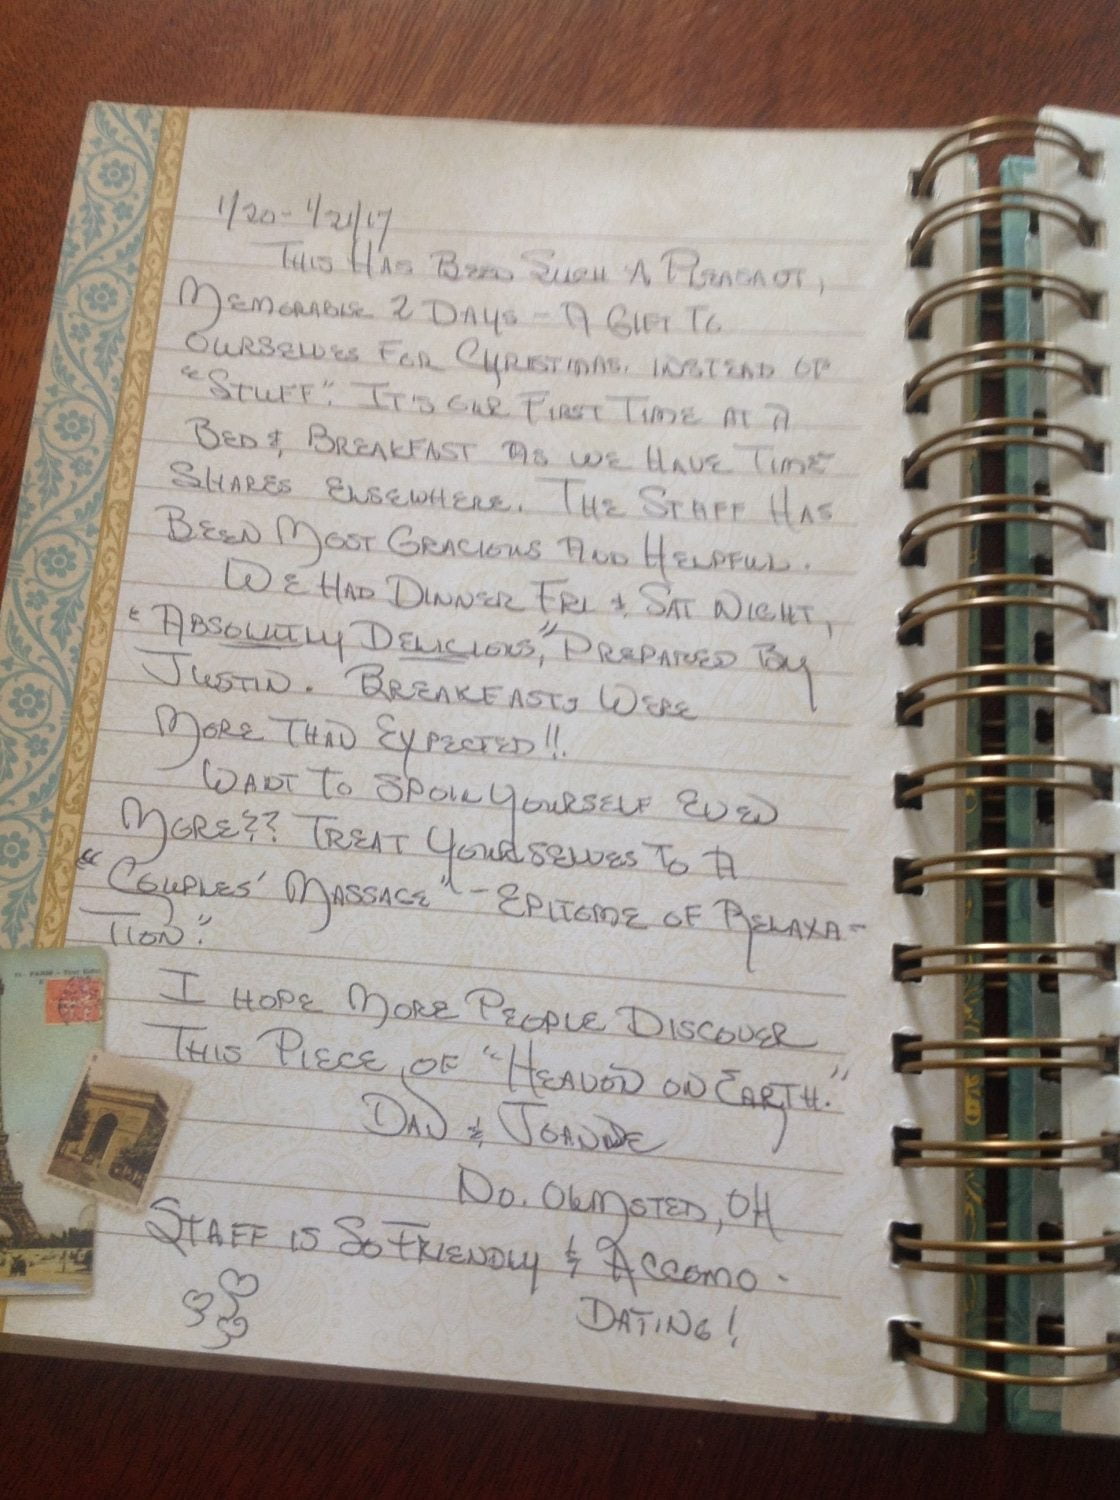 1/20 - 1/21/17
THIS HAS BEEN SUCH A PLEASANT,
MEMORABLE 2 DAYS - A GIFT TO
OURSELVES FOR CHRISTMAS. INSTEAD OF
"STUFF". IT'S OUR FIRST TIME AT A
BED & BREAKFAST AS WE HAVE TIME
SHARES ELSEWHERE. THE STAFF HAS
BEEN MOST GRACIOUS AND HELPFUL.
WE HAD DINNER FRI & SAT NIGHT,
"ABSOLUTLY DELICIOUS," PREPARED BY
JUSTIN. BREAKFASTS WERE
MORE THAN EXPECTED!!
WANT TO SPOIL YOURSELF EVEN
MORE?? TREAT YOURSELVES TO A
"COUPLES' MASSAGE" - EPITOME OF RELAXA-
TION."
I HOPE MORE PEOPLE DISCOVER
THIS PIECE OF "HEAVEN ON EARTH."
DAN & JOANNE
NO. OLMSTED, OH
STAFF IS SO FRIENDLY & ACCOMO-
DATING!
PARIS